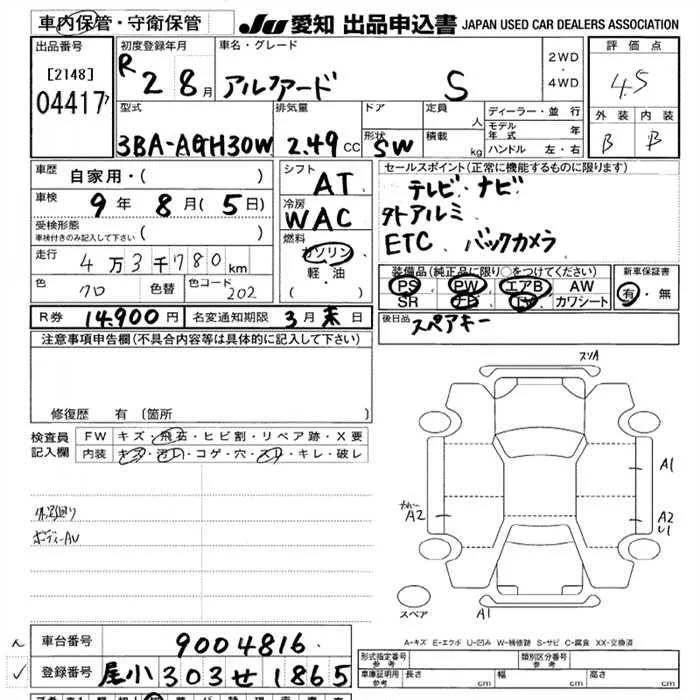 車内保管・守衛保管 JU 愛知 出品申込書 JAPAN USED CAR DEALERS ASSOCIATION
出品番号 [2148] 04417
初度登録年月 R 2 8月
車名・グレード アルファード S
2WD・4WD
評価点 4.5
外装 B 内装 B
型式 3BA-AGH30W
排気量 2.49 CC
ドア 形状 SW
定員 人 積載 kg
ディーラー・並行
モデル年式 年
ハンドル 左・右
車歴 自家用・( )
車検 9年 8月(5日)
受検形態 車検付きのみ記入して下さい ( )
走行 4万3千780km
色 クロ 色替 色コード 202
シフト AT
冷房 WAC
燃料 ガソリン・軽油・( )
セールスポイント(正常に機能するものに限ります)
テレビ ナビ
外アルミ
ETC、バックカメラ
装備品(純正品に限り○をつけてください)
PS PW エアB AW
SR ナビ TV カワシート
新車保証書 有・無
後日品 スペアキー
R券 14,900円 名変通知期限 3月末日
注意事項申告欄(不具合内容等は具体的に記入して下さい)
修復歴 有 〔箇所
検査員記入欄
FW キズ・飛石・ヒビ割・リペア跡・X要
内装 キズ・汚れ・コゲ・穴・スレ・キレ・破レ
ボディーAU
スリA
A1
A2
A2
U1
A1
スペア
A-キズ E-エクボ U-凹み W-補修跡 S-サビ C-腐食 XX-交換済
車台番号 9004816
登録番号 尾小 303 せ 1865
形式指定番号 参考 類別区分番号 参考
車庫証明用 参考 長さ cm 幅 cm 高さ cm